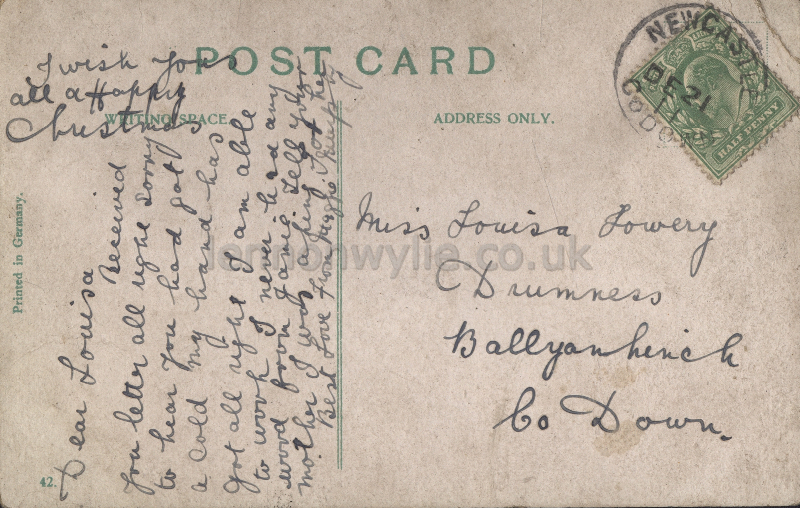 POST CARD
WRITING SPACE.
ADDRESS ONLY.
Printed in Germany.
42.
NEWCASTLE
DE 21
11
Co DOWN
HALFPENNY
I wish you
all a Happy
Christmas
Dear Louisa
Received
you letter all right sorry
to hear you had got
a cold my hand has
got all right I am able
to work I never had any
word from Jamie tell your
mother I was asking for her
Best Love from Maggie
Miss Louisa Lowery
Drumness
Ballyanhinch
Co Down.
lennonwylie.co.uk